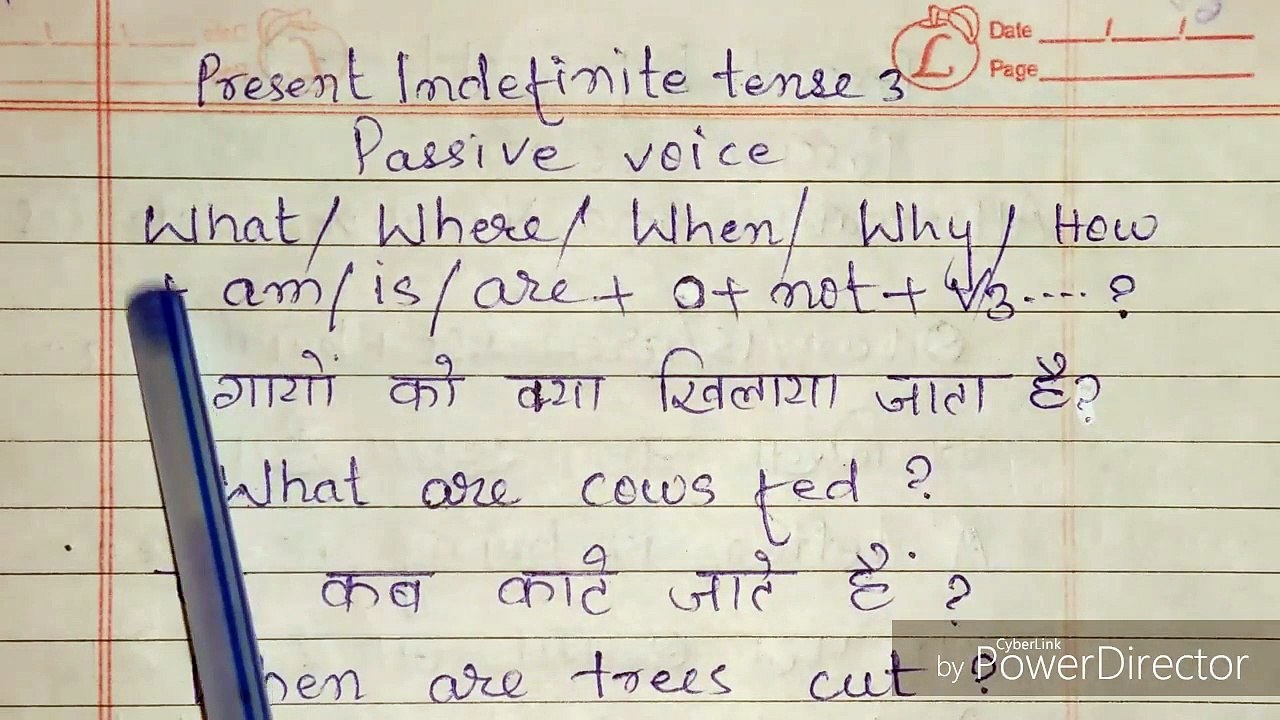 Date __/__/__
Page
Present Indefinite tense 3
Passive voice
What/ Where/ When/ Why/ How
+ am/ is/ are + O + not + V3 .... ?
गायों को क्या खिलाया जाता है?
What are cows fed ?
कब काटे जाते हैं ?
are trees cut ?
CyberLink
by PowerDirector